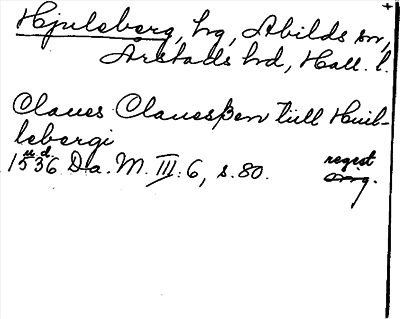 Hjuleberg, hg, Abilds sn,
Årstads hd, Hall. l.
Claues Clausßen tüll Huil-
lebergi
1536 u.d. Da. M. III: 6, s. 80. regist
orig.